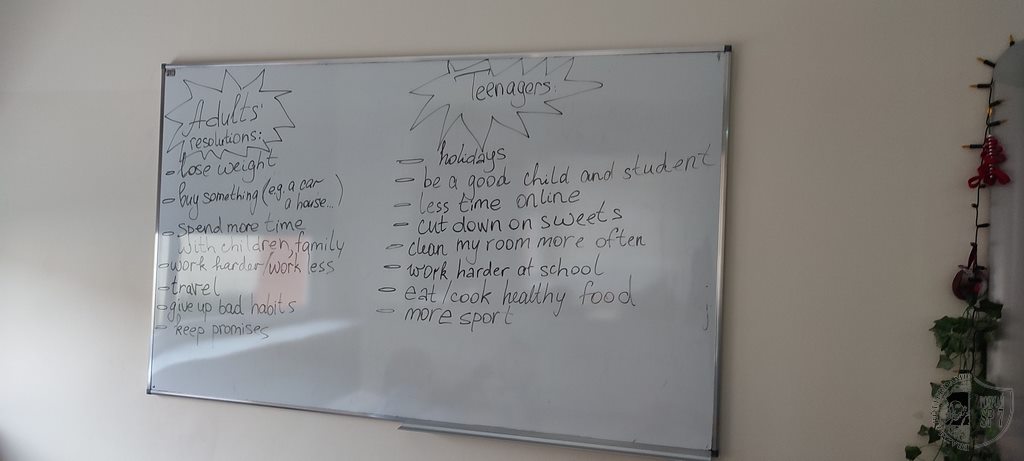 Adults'
resolutions:
- lose weight
- buy something (eg. a car
a house...)
- spend more time
with children, family
- work harder/work less
- travel
- give up bad habits
- keep promises
Teenagers:
- holidays
- be a good child and student
- less time online
- cut down on sweets
- clean my room more often
- work harder at school
- eat/cook healthy food
- more sport